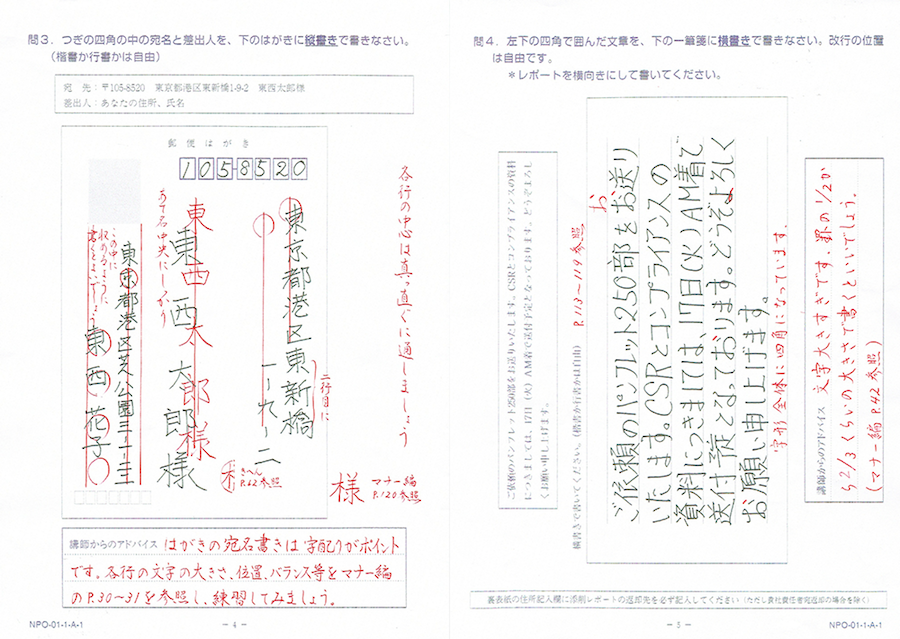 問3．つぎの四角の中の宛名と差出人を、下のはがきに縦書きで書きなさい。
（楷書か行書かは自由）
宛　先：〒105-8520　東京都港区東新橋1-9-2　東西太郎様
差出人：あなたの住所、氏名
郵便はがき
1058520
東京都港区東新橋
一ー九ー二
二行目に
東西太郎様
東西太郎様
あて名中央にしょう
東京都港区芝公園三ー一ー三
東西花子
この中に
収めるように
書くとよいでしょう
各行の中心は真っ直ぐに通しましょう
きへん
P.62参照
様
マナー編
P.120参照
講師からのアドバイス
はがきの宛名書きは字配りがポイント
です。各行の文字の大きさ、位置、バランス等をマナー編
のP.30〜31を参照し、練習してみましょう。
NPO-01-1-A-1
－ 4 －
問4．左下の四角で囲んだ文章を、下の一筆箋に横書きで書きなさい。改行の位置
は自由です。
＊レポートを横向きにして書いてください。
ご依頼のパンフレット250部をお送りいたします。CSRとコンプライアンスの資料
につきましては、17日（火）AM着で送付予定となっております。どうぞよろしく
くお願い申し上げます。
横書きで書いてください。（楷書か行書かは自由）
P.113〜119参照
お
ご依頼のパンフレット250部をお送り
いたします。CSRとコンプライアンスの
資料につきましては、17日(火)AM着で
送付予定となっております。どうぞよろしく
お願い申し上げます。
字形全体に四角になっています。
講師からのアドバイス
文字大きすぎです。罫の1/2か
ら2/3くらいの大きさで書くといいでしょう。
(マナー編P.42参照)
裏表紙の住所記入欄に添削レポートの返却先を必ず記入してください（ただし貴社責任者宛返却の場合を除く）
－ 5 －
NPO-01-1-A-1